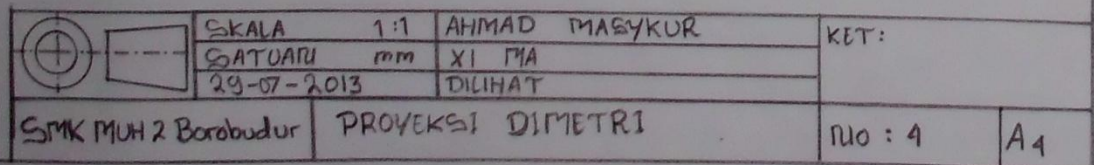 SKALA 1:1 AHMAD MASYKUR KET:
SATUAN mm XI MA
29-07-2013 DILIHAT
SMK MUH 2 Borobudur PROYEKSI DIMETRI NO : 4 A4